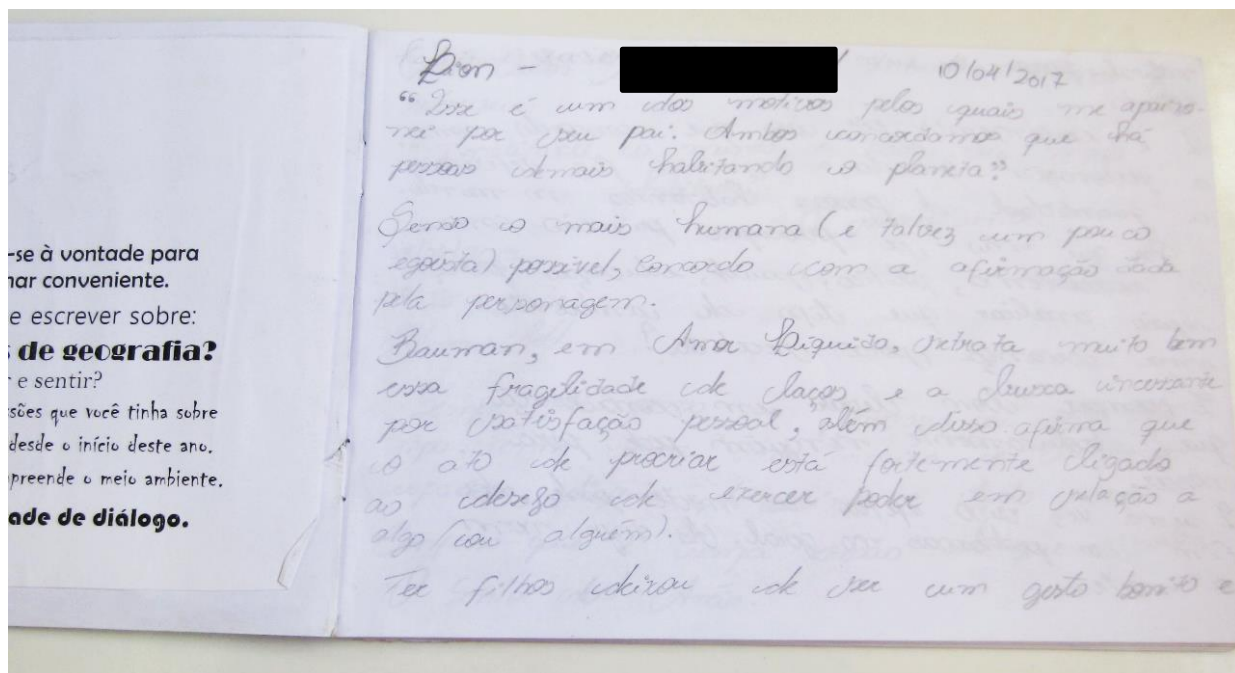 -se à vontade para
har conveniente.
e escrever sobre:
de geografia?
e sentir?
sões que você tinha sobre
desde o início deste ano.
preende o meio ambiente.
ade de diálogo.
10/04/2017
"Isse é um dos motivos pelos quais me apaixo-
nei por seu pai. Ambos concordamos que há
pessoas demais habitando o planeta"
Sendo o mais humana (e talvez um pouco
egoísta) possível, concordo com a afirmação dada
pela personagem.
Bauman, em Amor Líquido, retrata muito bem
essa fragilidade de laços e a busca incessante
por satisfação pessoal, além disso afirma que
o ato de procriar está fortemente ligado
ao desejo de exercer poder em relação a
algo (ou alguém).
Ter filhos deixou de ser um gesto bonito e